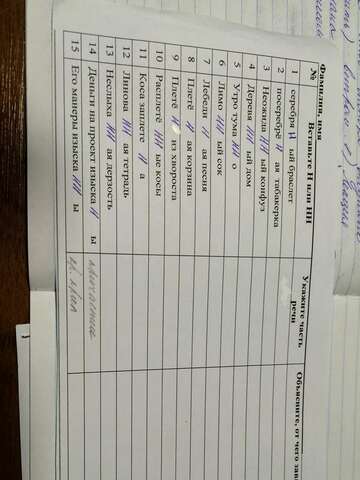 Фамилия, имя
№ Вставьте Н или НН Укажите часть речи Объясните, от чего
1 серебря н ый браслет
2 посеребрё н ая табакерка
3 Неожида нн ый конфуз
4 Деревя нн ый дом
5 Утро тума нн о
6 Лимо нн ый сок
7 Лебеди н ая песня
8 Плетё н ая корзина
9 Плетё н из хвороста
10 Расплетё нн ые косы
11 Коса заплете н а
12 Линова нн ая тетрадь
13 Неслыха нн ая дерзость
14 Деньги на проект изыска н ы причастие
15 Его манеры изыска нн ы кр. прил